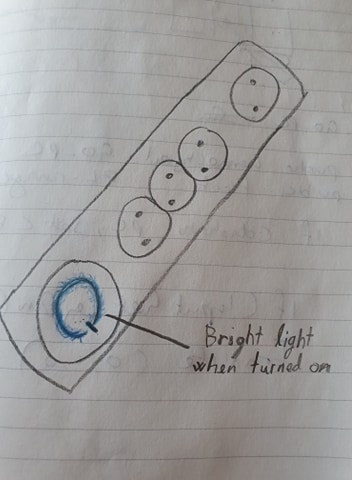 Bright light
when turned on